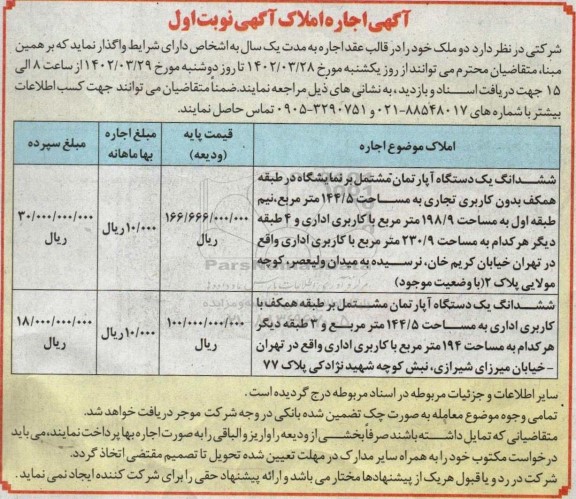 آگهی اجاره املاک آگهی نوبت اول
شرکتی در نظر دارد دو ملک خود را در قالب عقد اجاره به مدت یک سال به اشخاص دارای شرایط واگذار نماید که بر همین
مبنا، متقاضیان محترم می توانند از روز یکشنبه مورخ ۱۴۰۲/۰۳/۲۸ تا روز دوشنبه مورخ ۱۴۰۲/۰۳/۲۹ از ساعت ۸ الی
۱۵ جهت دریافت اسناد و بازدید، به نشانی های ذیل مراجعه نمایند. ضمناً متقاضیان می توانند جهت کسب اطلاعات
بیشتر با شماره های ۸۸۵۴۸۰۱۷-۰۲۱ و ۳۲۹۰۷۵۱-۰۹۰۵ تماس حاصل نمایند.
املاک موضوع اجاره
قیمت پایه
(ودیعه)
مبلغ اجاره
بها ماهانه
مبلغ سپرده
ششدانگ یک دستگاه آپارتمان مشتمل بر نمایشگاه در طبقه
همکف بدون کاربری تجاری به مساحت ۱۴۴/۵ متر مربع، نیم
طبقه اول به مساحت ۱۹۸/۹ متر مربع با کاربری اداری و ۴ طبقه
دیگر هر کدام به مساحت ۲۳۰/۹ متر مربع با کاربری اداری واقع
در تهران خیابان کریم خان، نرسیده به میدان ولیعصر، کوچه
مولایی پلاک ۲(با وضعیت موجود)
۱۶۶/۶۶۶/۰۰۰/۰۰۰
ریال
۱۰/۰۰۰ ریال
۳۰/۰۰۰/۰۰۰/۰۰۰
ریال
ششدانگ یک دستگاه آپارتمان مشتمل بر طبقه همکف با
کاربری اداری به مساحت ۱۴۴/۵ متر مربع و ۳ طبقه دیگر
هر کدام به مساحت ۱۹۴ متر مربع با کاربری اداری واقع در تهران
- خیابان میرزای شیرازی، نبش کوچه شهید نژادکی پلاک ۷۷
۱۰۰/۰۰۰/۰۰۰/۰۰۰
ریال
۱۰/۰۰۰ ریال
۱۸/۰۰۰/۰۰۰/۰۰۰
ریال
سایر اطلاعات و جزئیات مربوطه در اسناد مربوطه درج گردیده است.
تمامی وجوه موضوع معامله به صورت چک تضمین شده بانکی در وجه شرکت موجر دریافت خواهد شد.
متقاضیانی که تمایل داشته باشند صرفاً بخشی از ودیعه را واریز و الباقی را به صورت اجاره بها پرداخت نمایند، می باید
درخواست مکتوب خود را به همراه سایر مدارک در مهلت تعیین شده تحویل تا تصمیم مقتضی اتخاذ گردد.
شرکت در رد و یا قبول هر یک از پیشنهادها مختار می باشد و ارائه پیشنهاد حقی را برای شرکت کننده ایجاد نمی نماید.